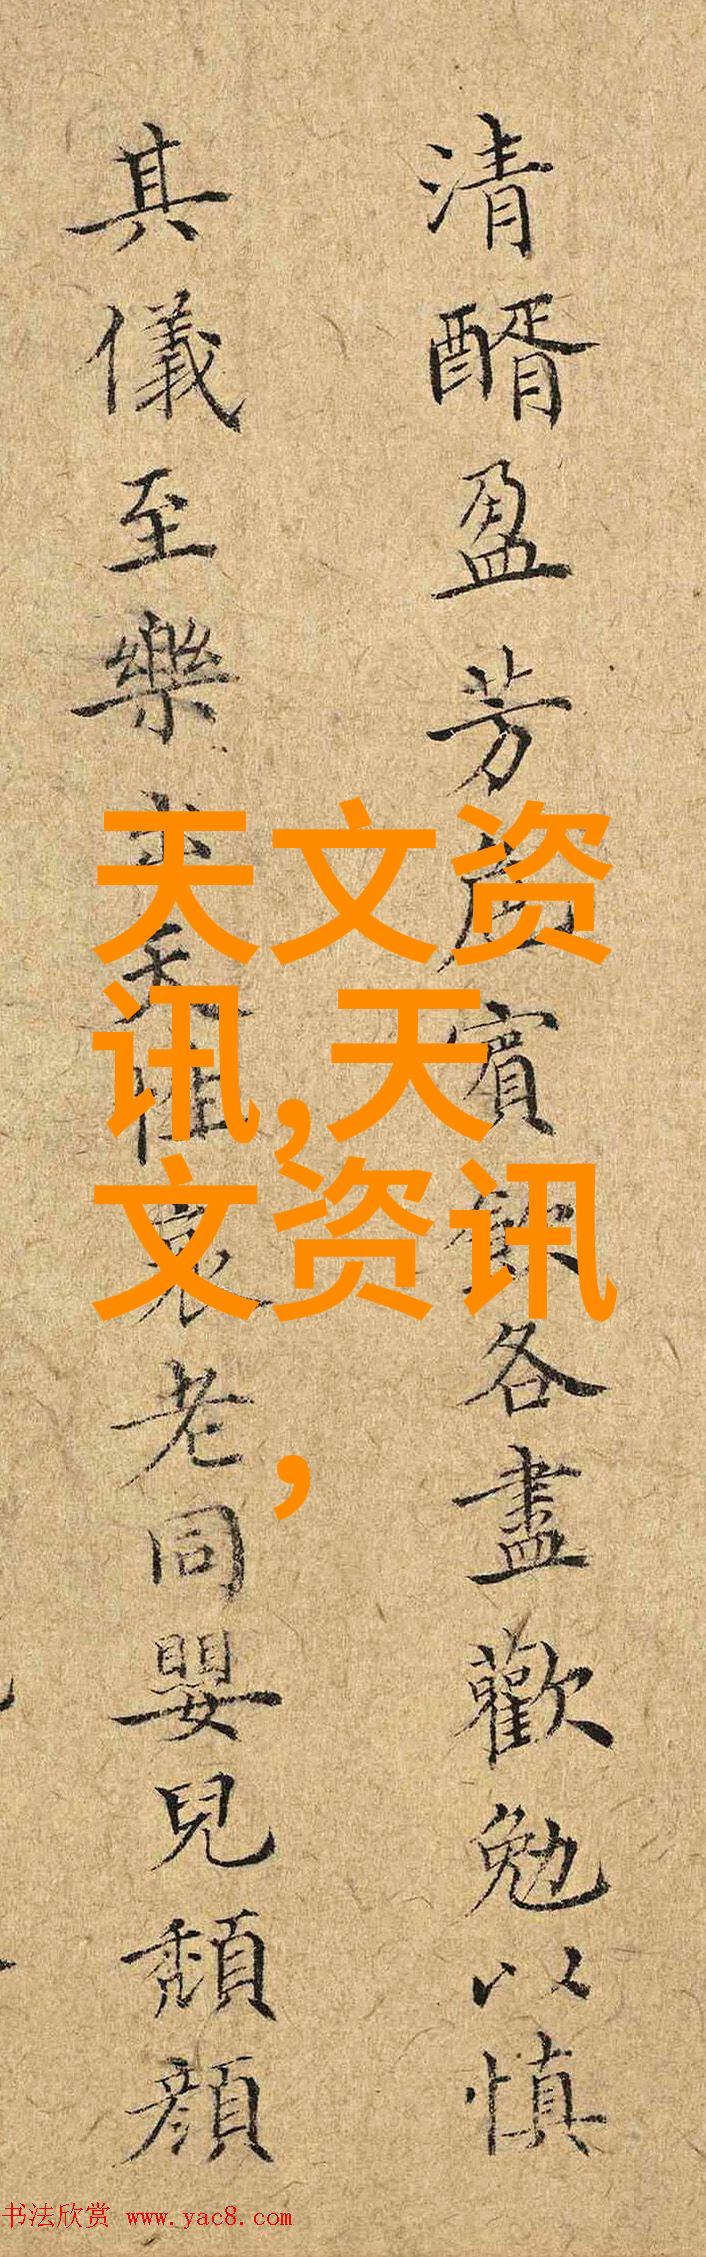 清醑盈芳
賓飲各盡歡勉以慎
其儀至樂
天
衰老同嬰兒頹顏
天文资
讯,天
文资讯
,
书法欣赏 www.yac8.com